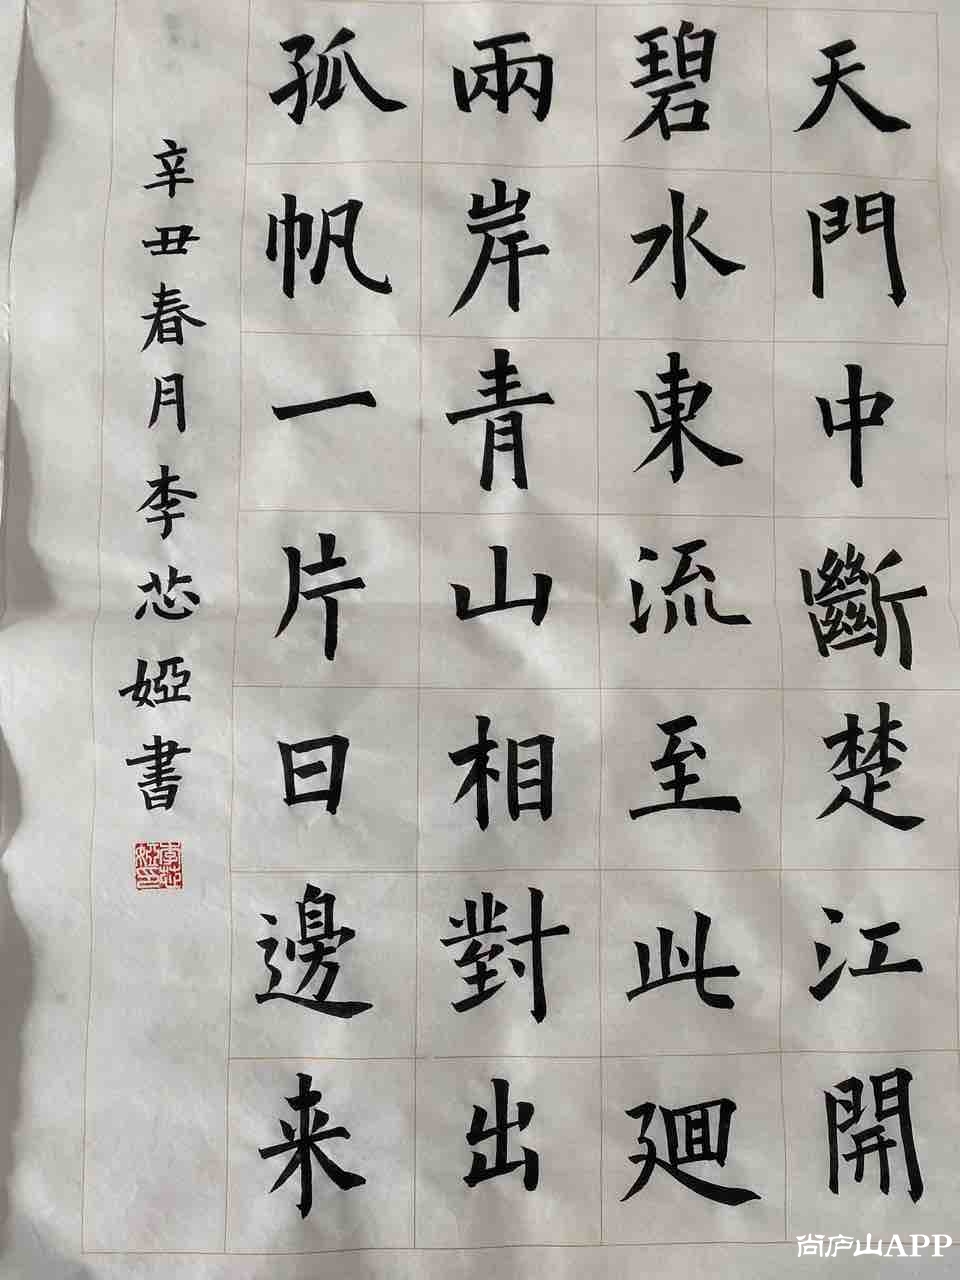 天門中斷楚江開
碧水東流至此廻
兩岸青山相對出
孤帆一片日邊来
辛丑春月李芯婭書
李芯婭印
尚庐山APP